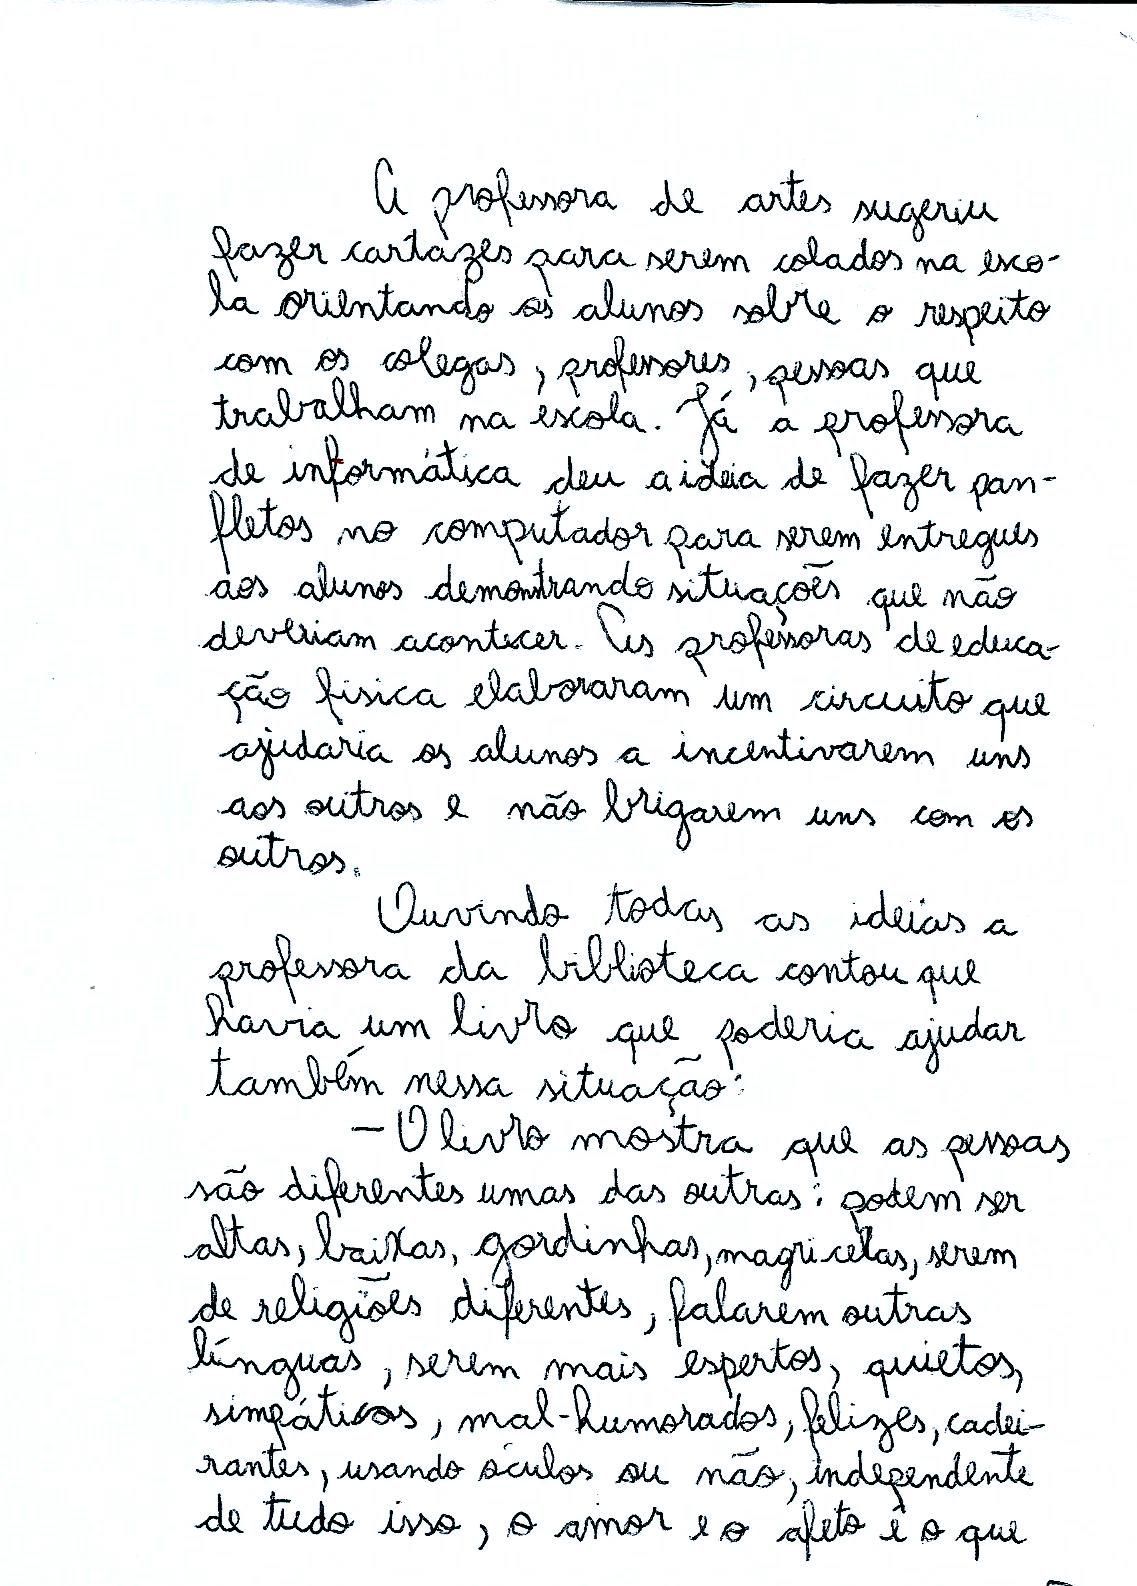 A professora de artes sugeriu
fazer cartazes para serem colados na esco-
la orientando os alunos sobre o respeito
com os colegas, professores, pessoas que
trabalham na escola. Já a professora
de informática deu a ideia de fazer pan-
fletos no computador para serem entregues
aos alunos demonstrando situações que não
deveriam acontecer. As professoras de educa-
ção fisica elaboraram um circuito que
ajudaria os alunos a incentivarem uns
aos outros e não brigarem uns com os
outros.
Ouvindo todas as ideias a
professora da biblioteca contou que
havia um livro que poderia ajudar
também nessa situação:
- O livro mostra que as pessoas
são diferentes umas das outras: podem ser
altas, baixas, gordinhas, magricelas, serem
de religiões diferentes, falarem outras
línguas, serem mais espertos, quietos,
simpáticos, mal-humorados, felizes, cadei-
rantes, usando óculos ou não, independente
de tudo isso, o amor e o afeto é o que